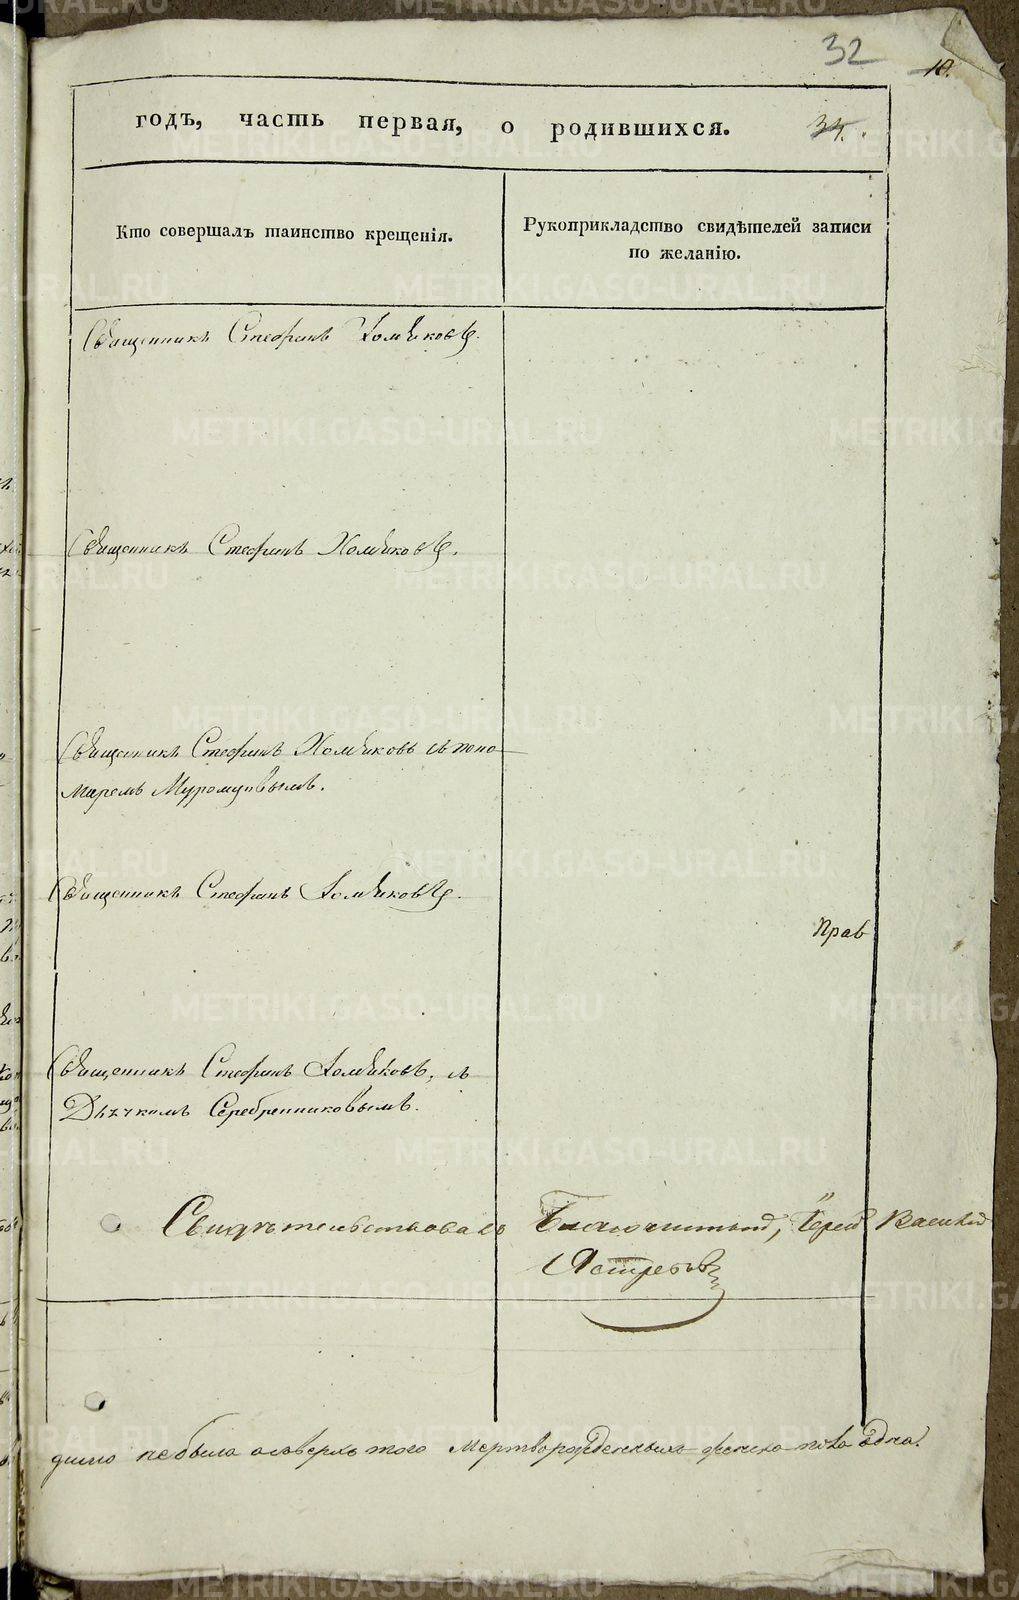 32
10.
годъ, часть первая, о родившихся. 34.
Кто совершалъ таинство крещенія.
Рукоприкладство свидѣтелей записи
по желанію.
Священникъ Стефанъ Хомяковъ.
Священникъ Стефанъ Хомяковъ.
Священникъ Стефанъ Хомяковъ съ поно
маремъ Муромцовымъ.
Священникъ Стефанъ Хомяковъ.
Прав
Священникъ Стефанъ Хомяковъ, съ
Дьячкомъ Серебренниковымъ.
Свидѣтельствовалъ Благочинный, Іерей Василій
Ястребовъ
не было а сверхъ того мертворожденныхъ женска пола одна.
METRIKI.GASO-URAL.RU